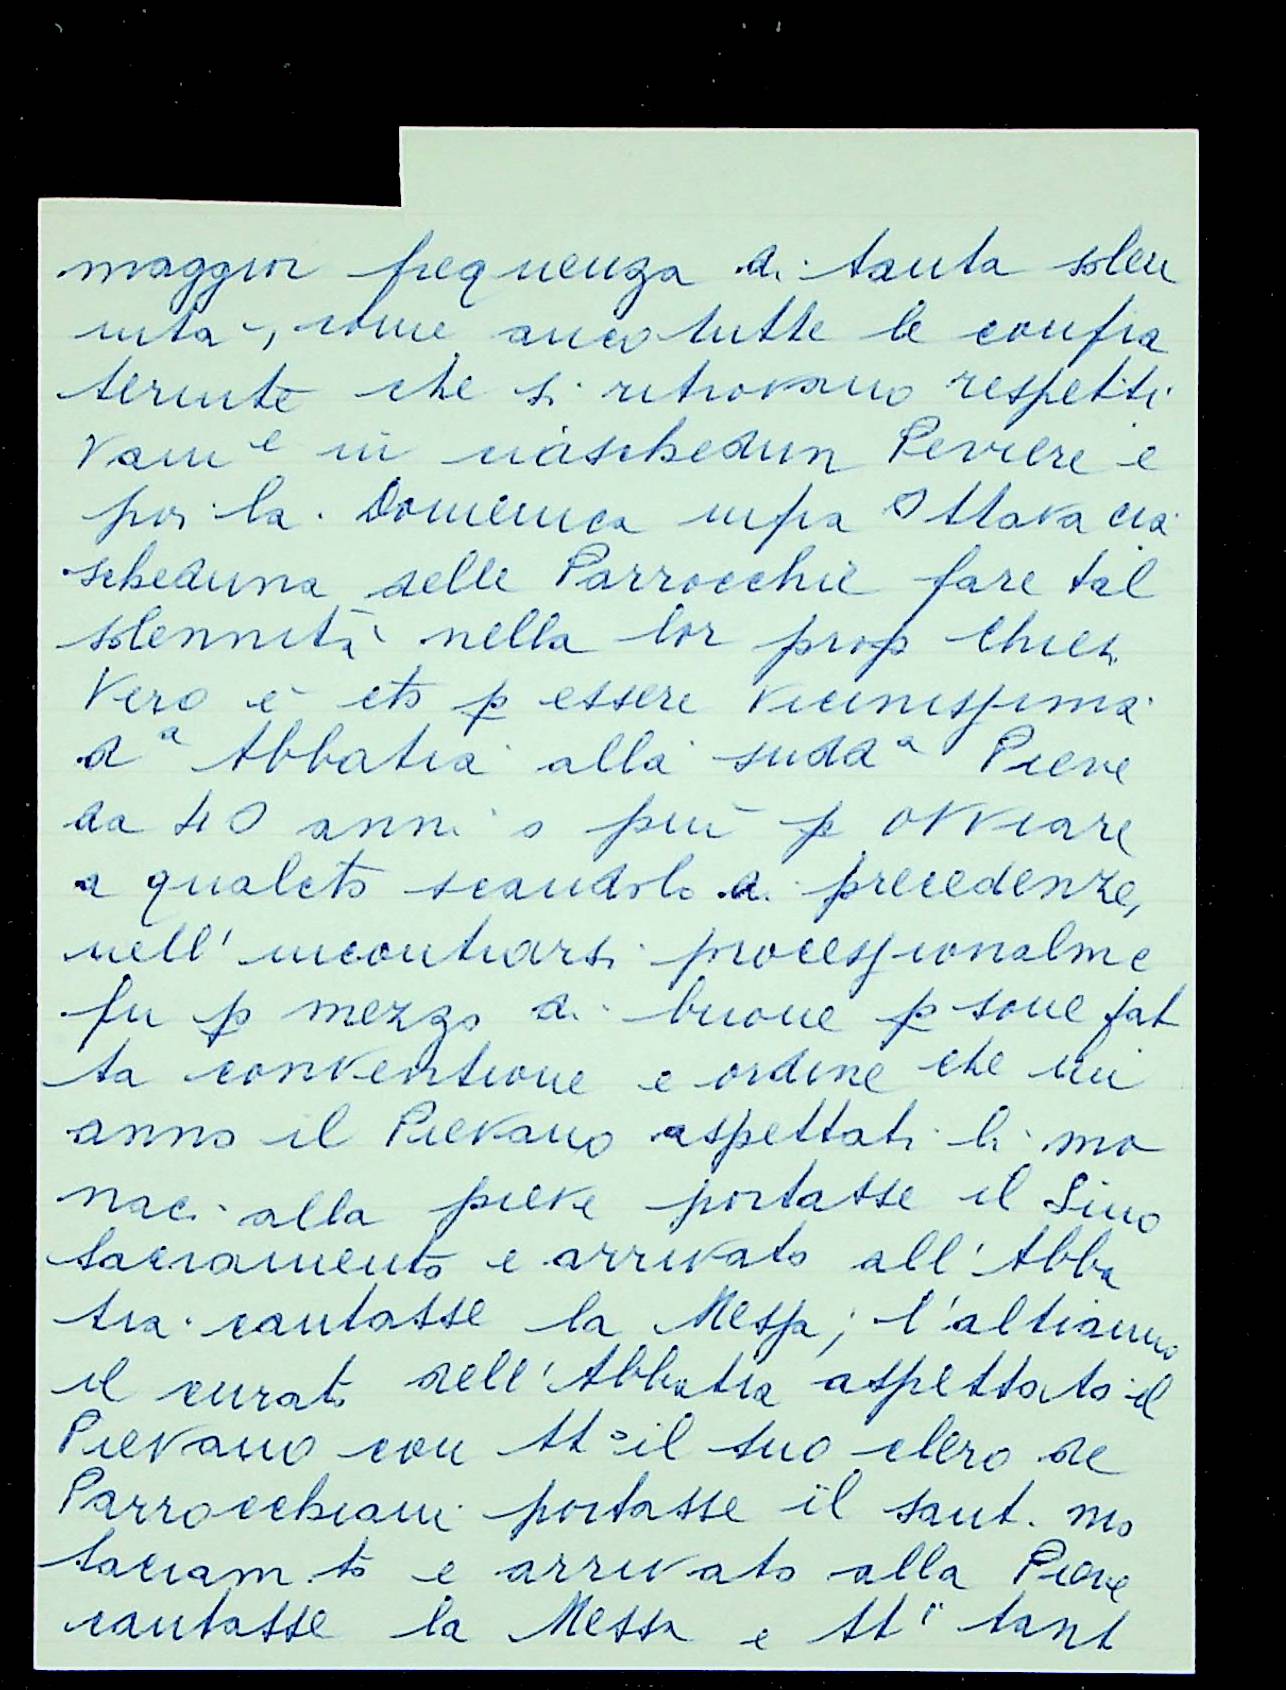 maggior frequenza di tanta solen
nità, come anco tutte le confra
ternite che si ritrovano respetti
vam e in ciaschedun Peviere e
poi la Domenica infra Ottava cia
scheduna delle Parrocchie fare tal
solennità nella lor prop Chies
Vero è cto p essere vicinissima
d a Abbatia alla sudd a Pieve
da 40 anni o più p ovviare
a qualcto scandolo di precedenze,
nell'incontrarsi processionalme
fu p mezzo di buone p sone fat
ta conventione e ordine che un
anno il Pievano aspettati li mo
naci alla pieve portasse il Smo
Sacramento e arrivato all'Abba
tia cantasse la Messa; l'altranno
il curato dell'Abbatia aspettato il
Pievano con tt o il suo clero de
Parrocchiani portasse il sant. mo
Sacram.to e arrivato alla Pieve
cantasse la Messa e tt i tant